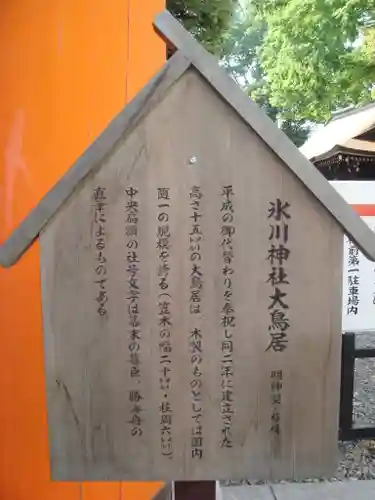 氷川神社大鳥居
明神型・銘椿
平成の御代替わりを奉祝し同二年に建立された
高さ十五㍍の大鳥居は、木製のものとしては国内
随一の規模を誇る（笠木の幅二十㍍・柱周六㍍）。
中央扁額の社号文字は幕末の幕臣、勝海舟の
直筆によるものである
前第一駐車場内